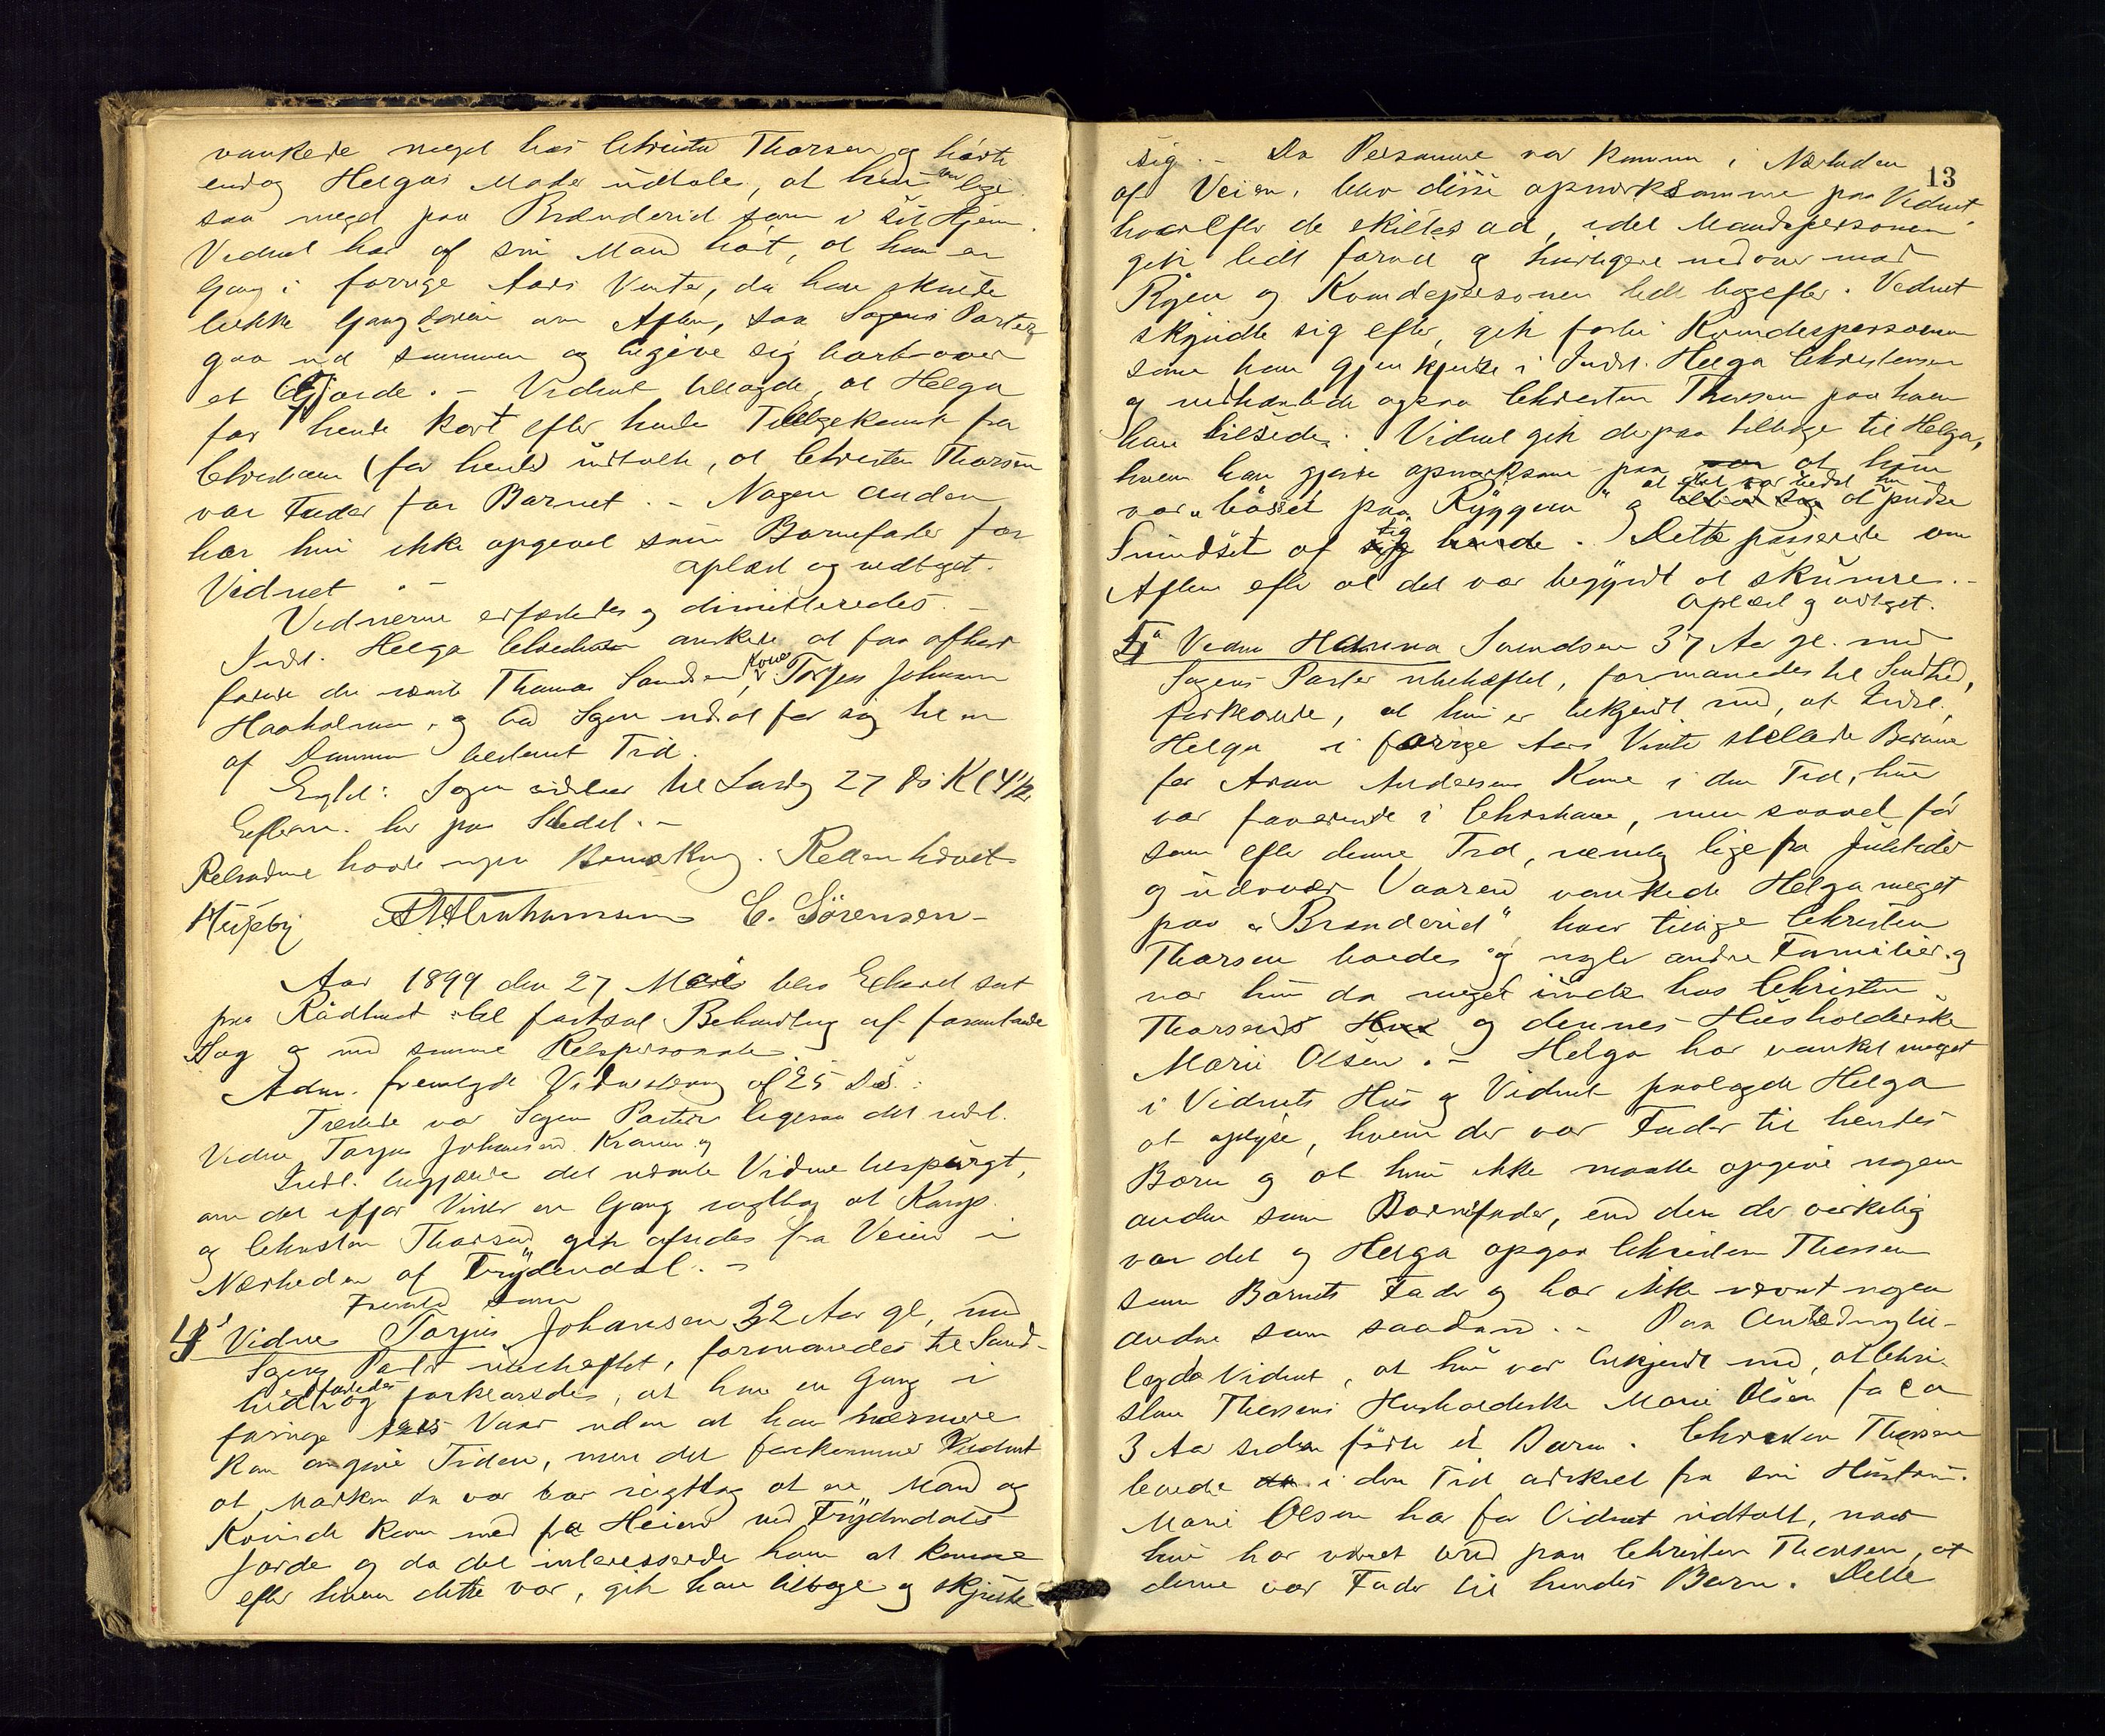 vankede meget hos Christen Thorsen og hørte
endog Helgas Moder udtale, at hun var lige
saa meget paa Brænderid som i sit Hjem.
Vidnet har af sin Mand hørt, at han en
Gang i forrige Aars Vinter, da han skulde
lukke Gangdøren om Aften, saa Sagens Parter
gaa ud sammen og begive sig bort over
et Gjærde. - Vidnet tillagde, at Helga
for hende kort efter hendes Tilbagekomst fra
Christiania (for hende) udtalte, at Christen Thorsen
var Fader for Barnet. - Nogen anden
har hun ikke opgevet som Barnefader for
Vidnet. - oplæst og vedtaget.
Vidnerne erfaredes og dimitteredes. -
Indst. Helga Christensen ønskede at faa afhørt
forude du nævnte Thomas Sandsen Kone, Torjus Johansen
Haaholmen, og bad Sagen udsat for sig til en
af Dommeren bestemt Tid.
Eragtet: Sagen udsættes til Lørdag 27 ds Kl 4 1/2
Efterm. her paa Stedet. -
Retsvidnerne havde ingen Bemærkning. Retten hævet
Huseby C. Sörensen -
Aar 1899 den 27 Mai blev Extraret sat
paa Rådhuset til fortsat Behandling af foranstaaende
Sag og med samme Retspersonale.
Adm. fremlagde Vidnestevning af 25 Ds. :
Tilstede var Sagens Parter ligesaa det indst.
Vidne Torjus Johansen
Indst. begjærede det nævnte Vidne bespurgt,
om det ifjor Vinter en Gang iagttog at Komp.
og Christen Thorsen gik afsides fra Veien i
Nærheden af Frydendal. -
Fremstod som
4' Vidne Torjus Johansen 32 Aar gl, med
Sagens Parter ubeheftet, formanedes til Sand-
hed edfæstedes og forklaredes, at han en Gang i
forrige Aars Vaar uden at han nærmere
kan angive Tiden, men det forekommer Vidnet
at Marken da var bar iagttog at en Mand og
Kvinde kom ned fra Heien ved Frydendals
Jorde og da det interesserede ham at komme
efter hvem dette var, gik han tilbage og skjulte
13
sig. - Da Personerne var kommen i Nærheden
af Veien, blev disse opmærksomme paa Vidnet
hvorefter de skiltes ad, idet Mandspersonen
gik lidt forud og hurtigere nedover mod
Byen og Kvindepersonen lidt bagefter. Vidnet
skyndte sig efter, gik forbi Kvindespersonen
som han gjenkjendte i Indst. Helga Christensen
og indhentede ogsaa Christen Thorsen paa hvem
han tilsidst. Vidnet gik derpaa tilbage til Helga,
hvem han gjorde opmærksom paa at hun
var "bösset paa Ryggen" og at det var bedst hun at pudse
Smudset af sig. Dette passerede om
Aften efter at det var begyndt at skumre. -
Oplæst og vedtaget.
5' Vidne Hanna Svendsen 37 Aar gl. med
Sagens Parter ubeheftet, formanedes til Sandhed,
forklarede, at hun er bekjendt med, at Indst.
Helga i forrige Aars Vinter stellede Børnene
for Aron Andersens Kone i den Tid, hun
var fraværende i Christiania, men saavel før
som efter denne Tid, nemlig lige fra Juletider
og udover Vaaren vankede Helga meget
paa "Brænderid", hvor tillige Christen
Thorsen boede og nogle andre Familier og
var hun da meget inde hos Christen
Thorsens og dennes Husholderske
Marie Olsen. - Helga har vanket meget
i Vidnets Hus og Vidnet paalagde Helga
at oplyse, hvem der var Fader til hendes
Barn og at hun ikke maatte opgive nogen
anden som Barnefader, end den der virkelig
var det og Helga opgav Christen Thorsen
som Barnets Fader og har ikke nævnt nogen
anden som saadan. - Paa Anledning til-
lagde Vidnet, at hun var bekjendt med, at Chri-
sten Thorsens Husholderske Marie Olsen for ca
3 Aar siden fødte et Barn. Christen Thorsen
levede i den Tid adskilt fra sin Hustru.
Marie Olsen har for Vidnet udtalt, naar
hun har været vred paa Christen Thorsen, at
denne var Fader til hendes Barn. Dette